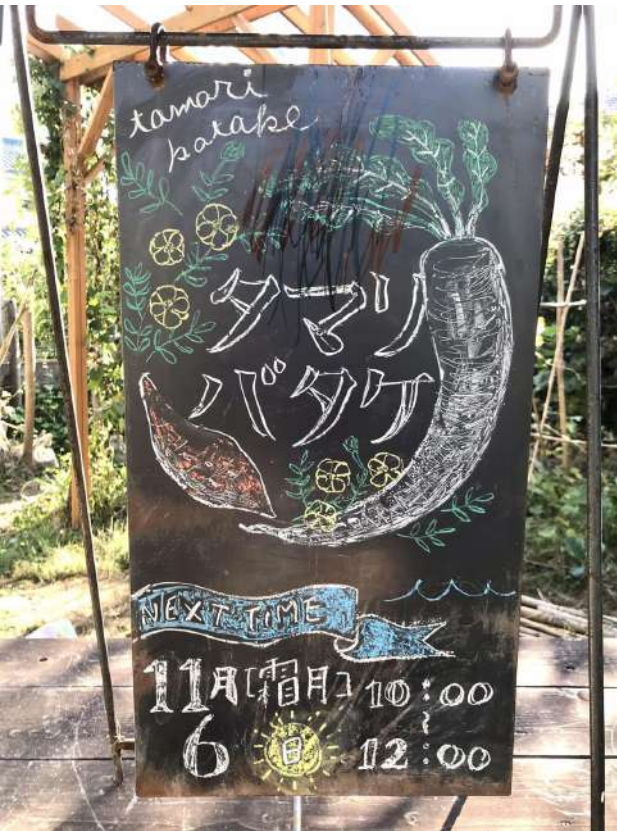 tamari
batake
タマリ
バタケ
NEXT TIME
11月[霜月] 10:00
~
6 日 12:00